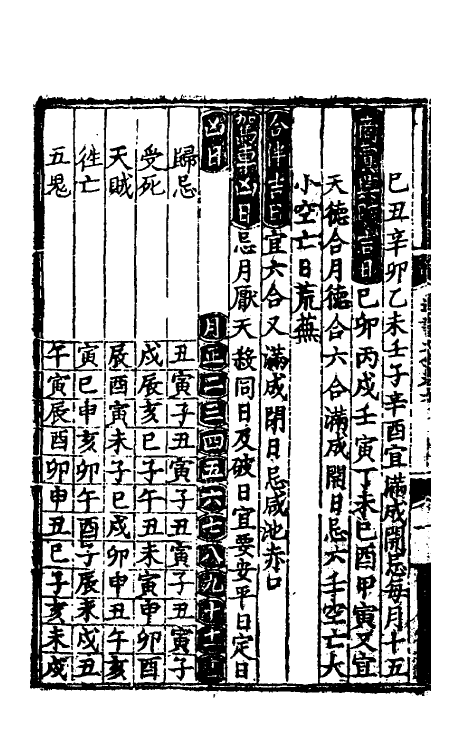 己丑辛卯乙未壬子辛酉宜滿成開忌每月十五
吉日己卯丙戌壬寅丁未己酉甲寅又宜
天德合月德合六合滿成開日忌六壬空亡大
小空亡日荒蕪
合伴吉日宜六合又滿成閉日忌咸池赤口
駕車凶日忌月厭天殺同日及破日宜要安平日定日
凶日 月正二三四五六七八九十十一十二
歸忌 丑寅子丑寅子丑寅子丑寅子
受死 戌辰亥巳子午丑未寅申卯酉
天賊 辰酉寅未子巳戌卯申丑午亥
徃亡 寅巳申亥卯午酉子辰未戌丑
五鬼 午寅辰酉卯申丑巳子亥未戌